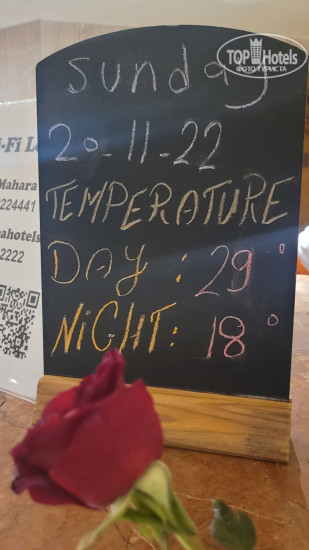 Sunday
20-11-22
TEMPERATURE
DAY : 29°
NiGHT: 18°
i-Fi
Mahara
224441
ahotels
2222
TOPHotels
ФОТО ТУРИСТА